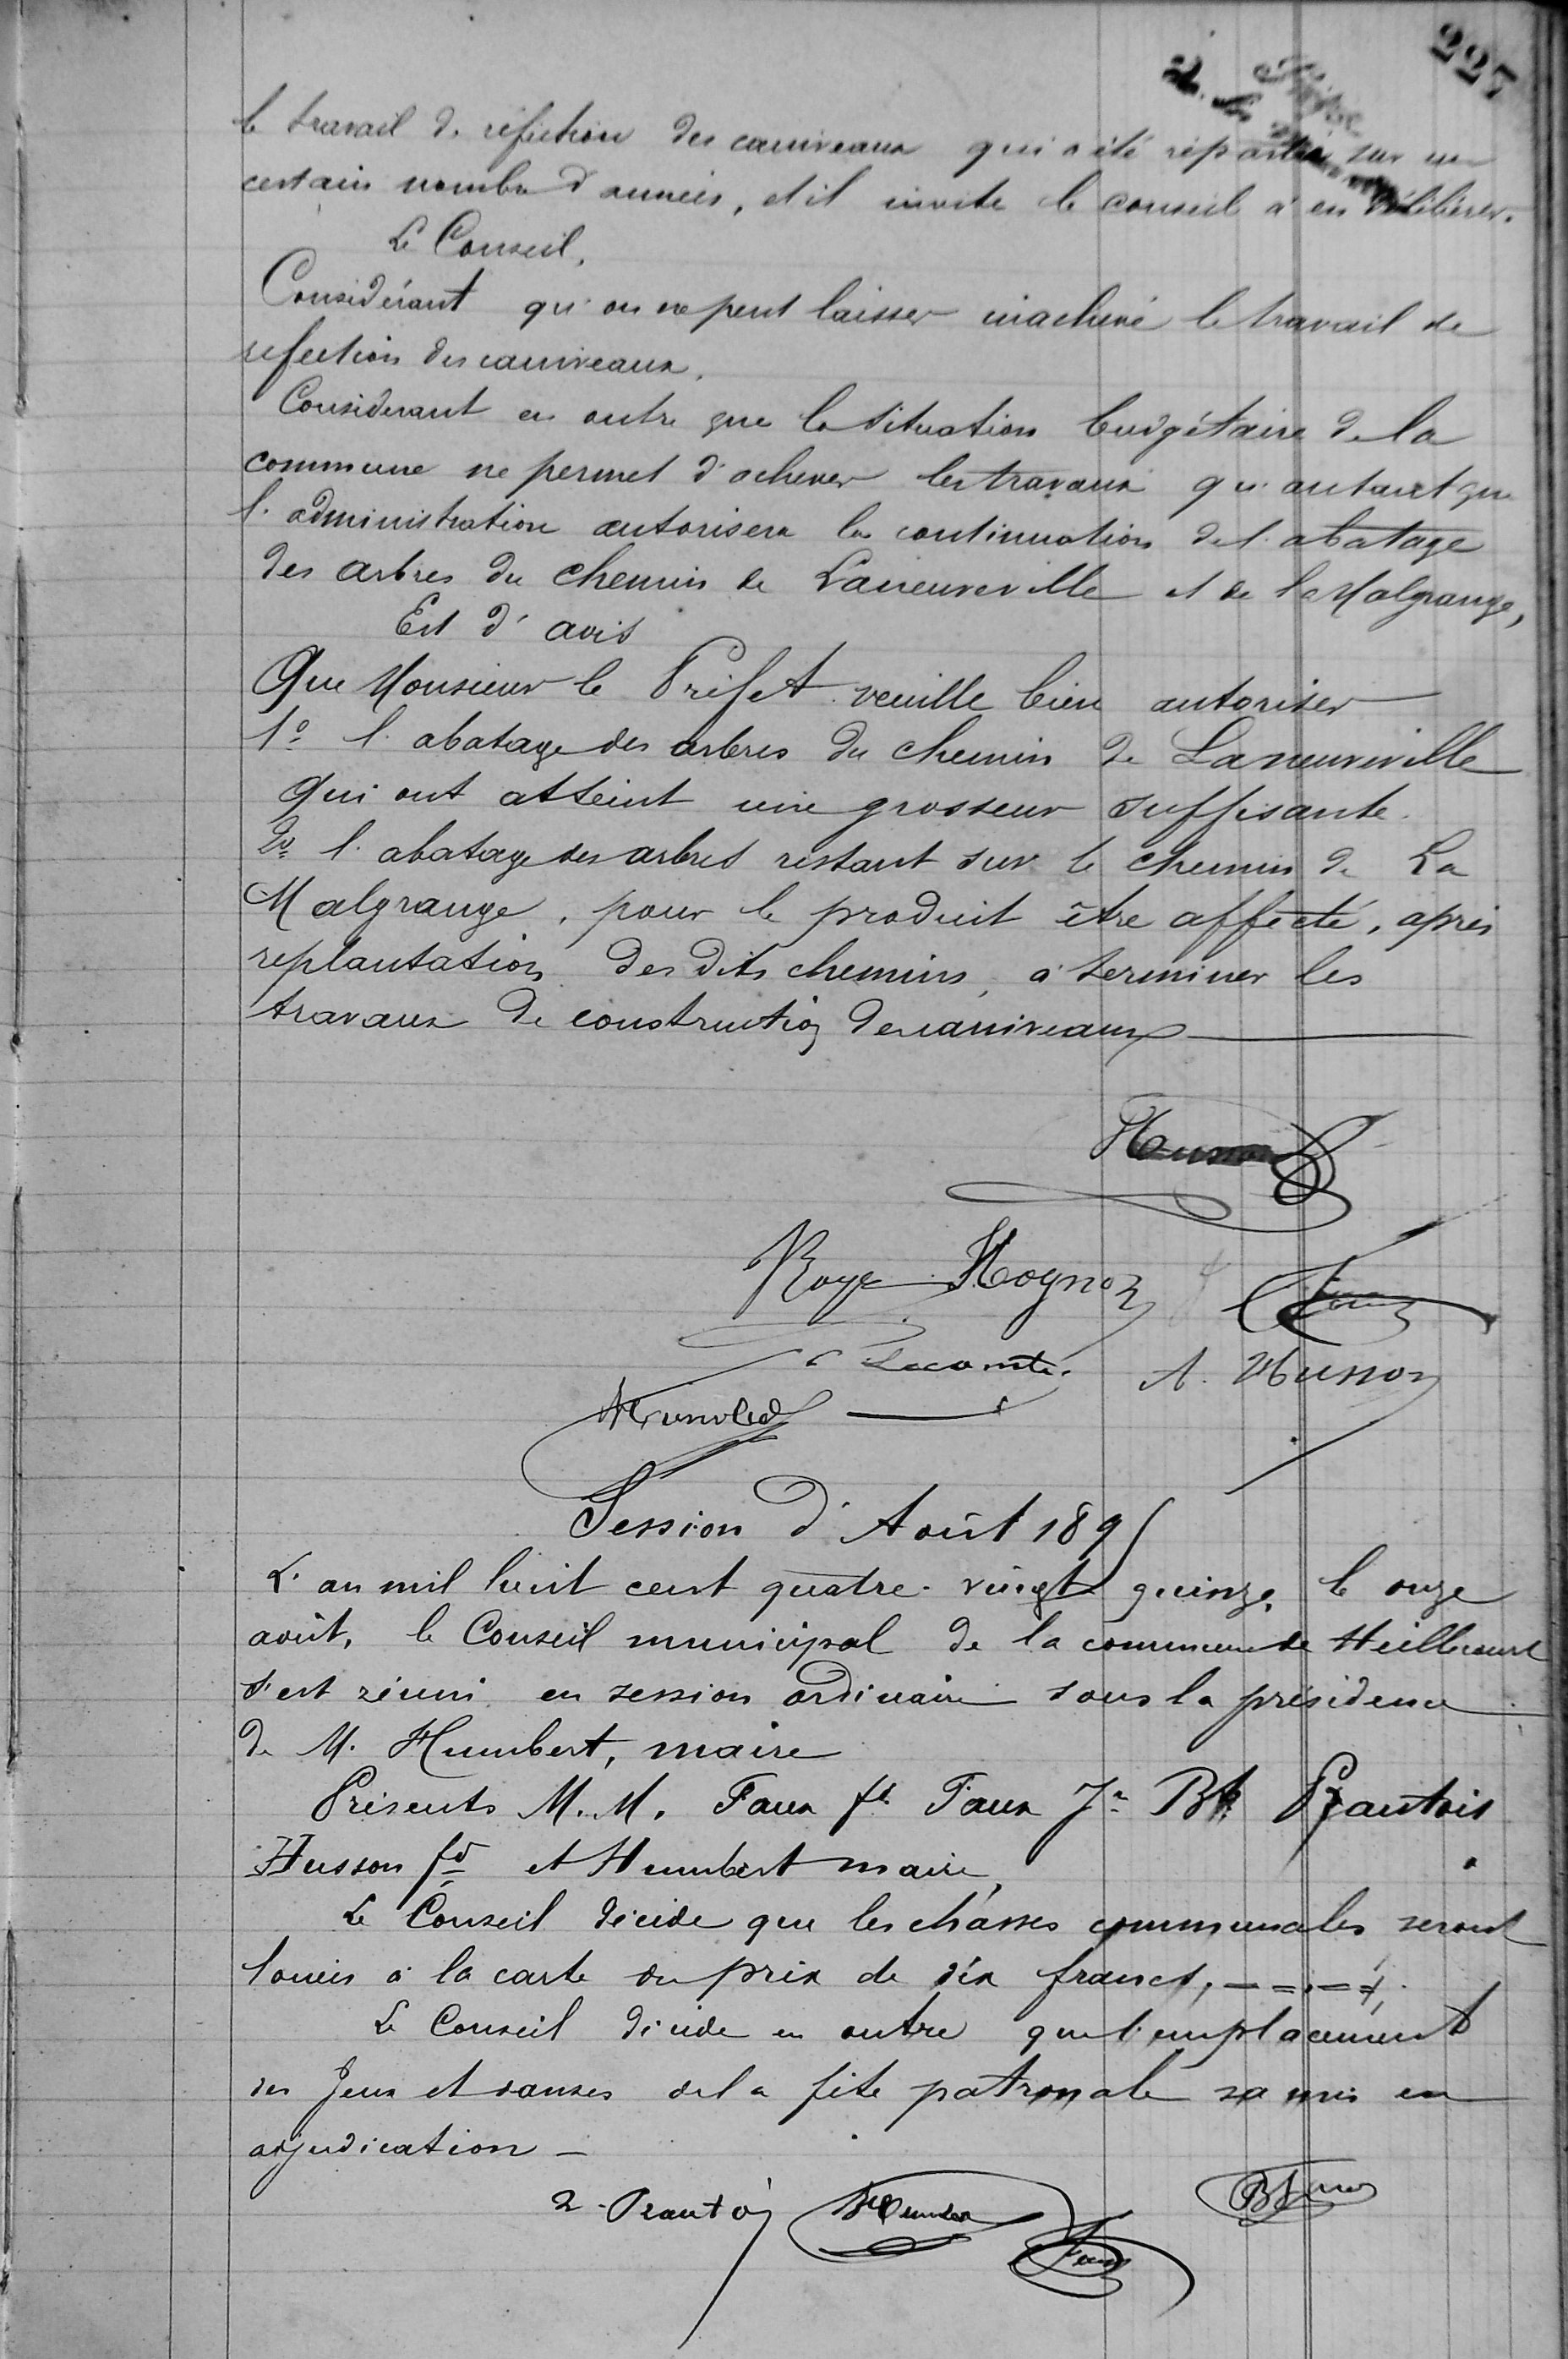 227
le travail de réfection des caniveaux qui a été réparti sur un
certain nombre d'années, et il invite le conseil à en délibérer.
Le Conseil,
Considérant qu'on ne peut laisser inachevé le travail de
refection des caniveaux,
Considerant en outre que la situation budgétaire de la
commune ne permet d'achever les travaux qu'autant que
l'administration autorisera la continuation de l'abatage
des arbres du chemin de Laneuveville et de la Malgrange,
Est d'avis
Que Monsieur le Préfet veuille bien autoriser
1º l'abatage des arbres du chemin de Laneuveville
qui ont atteint une grosseur suffisante.
2º l'abatage des arbres restant sur le chemin de La
Malgrange, pour le produit être affecté, après
replantation des dits chemins, à terminer les
travaux de construction des caniveaux
Husson
Roye Hognon Faux
Lecomte A. Husson
Humbert
Session d'Août 1895
L'an mil huit cent quatre-vingt quinze, le onze
août, le Conseil municipal de la commune de Heillecourt
s'est réuni en session ordinaire sous la présidence
de M. Humbert, maire
Présents M.M. Faux fs Faux Jn Bte Prautois
Husson fd et Humbert maire,
Le Conseil décide que les chasses communales seront
louées à la carte au prix de dix francs,
Le Conseil décide en outre que l'emplacement
des Jeux et danses de la fête patronale sera mis en
adjudication -
Prautois Humbert BFaux
Faux